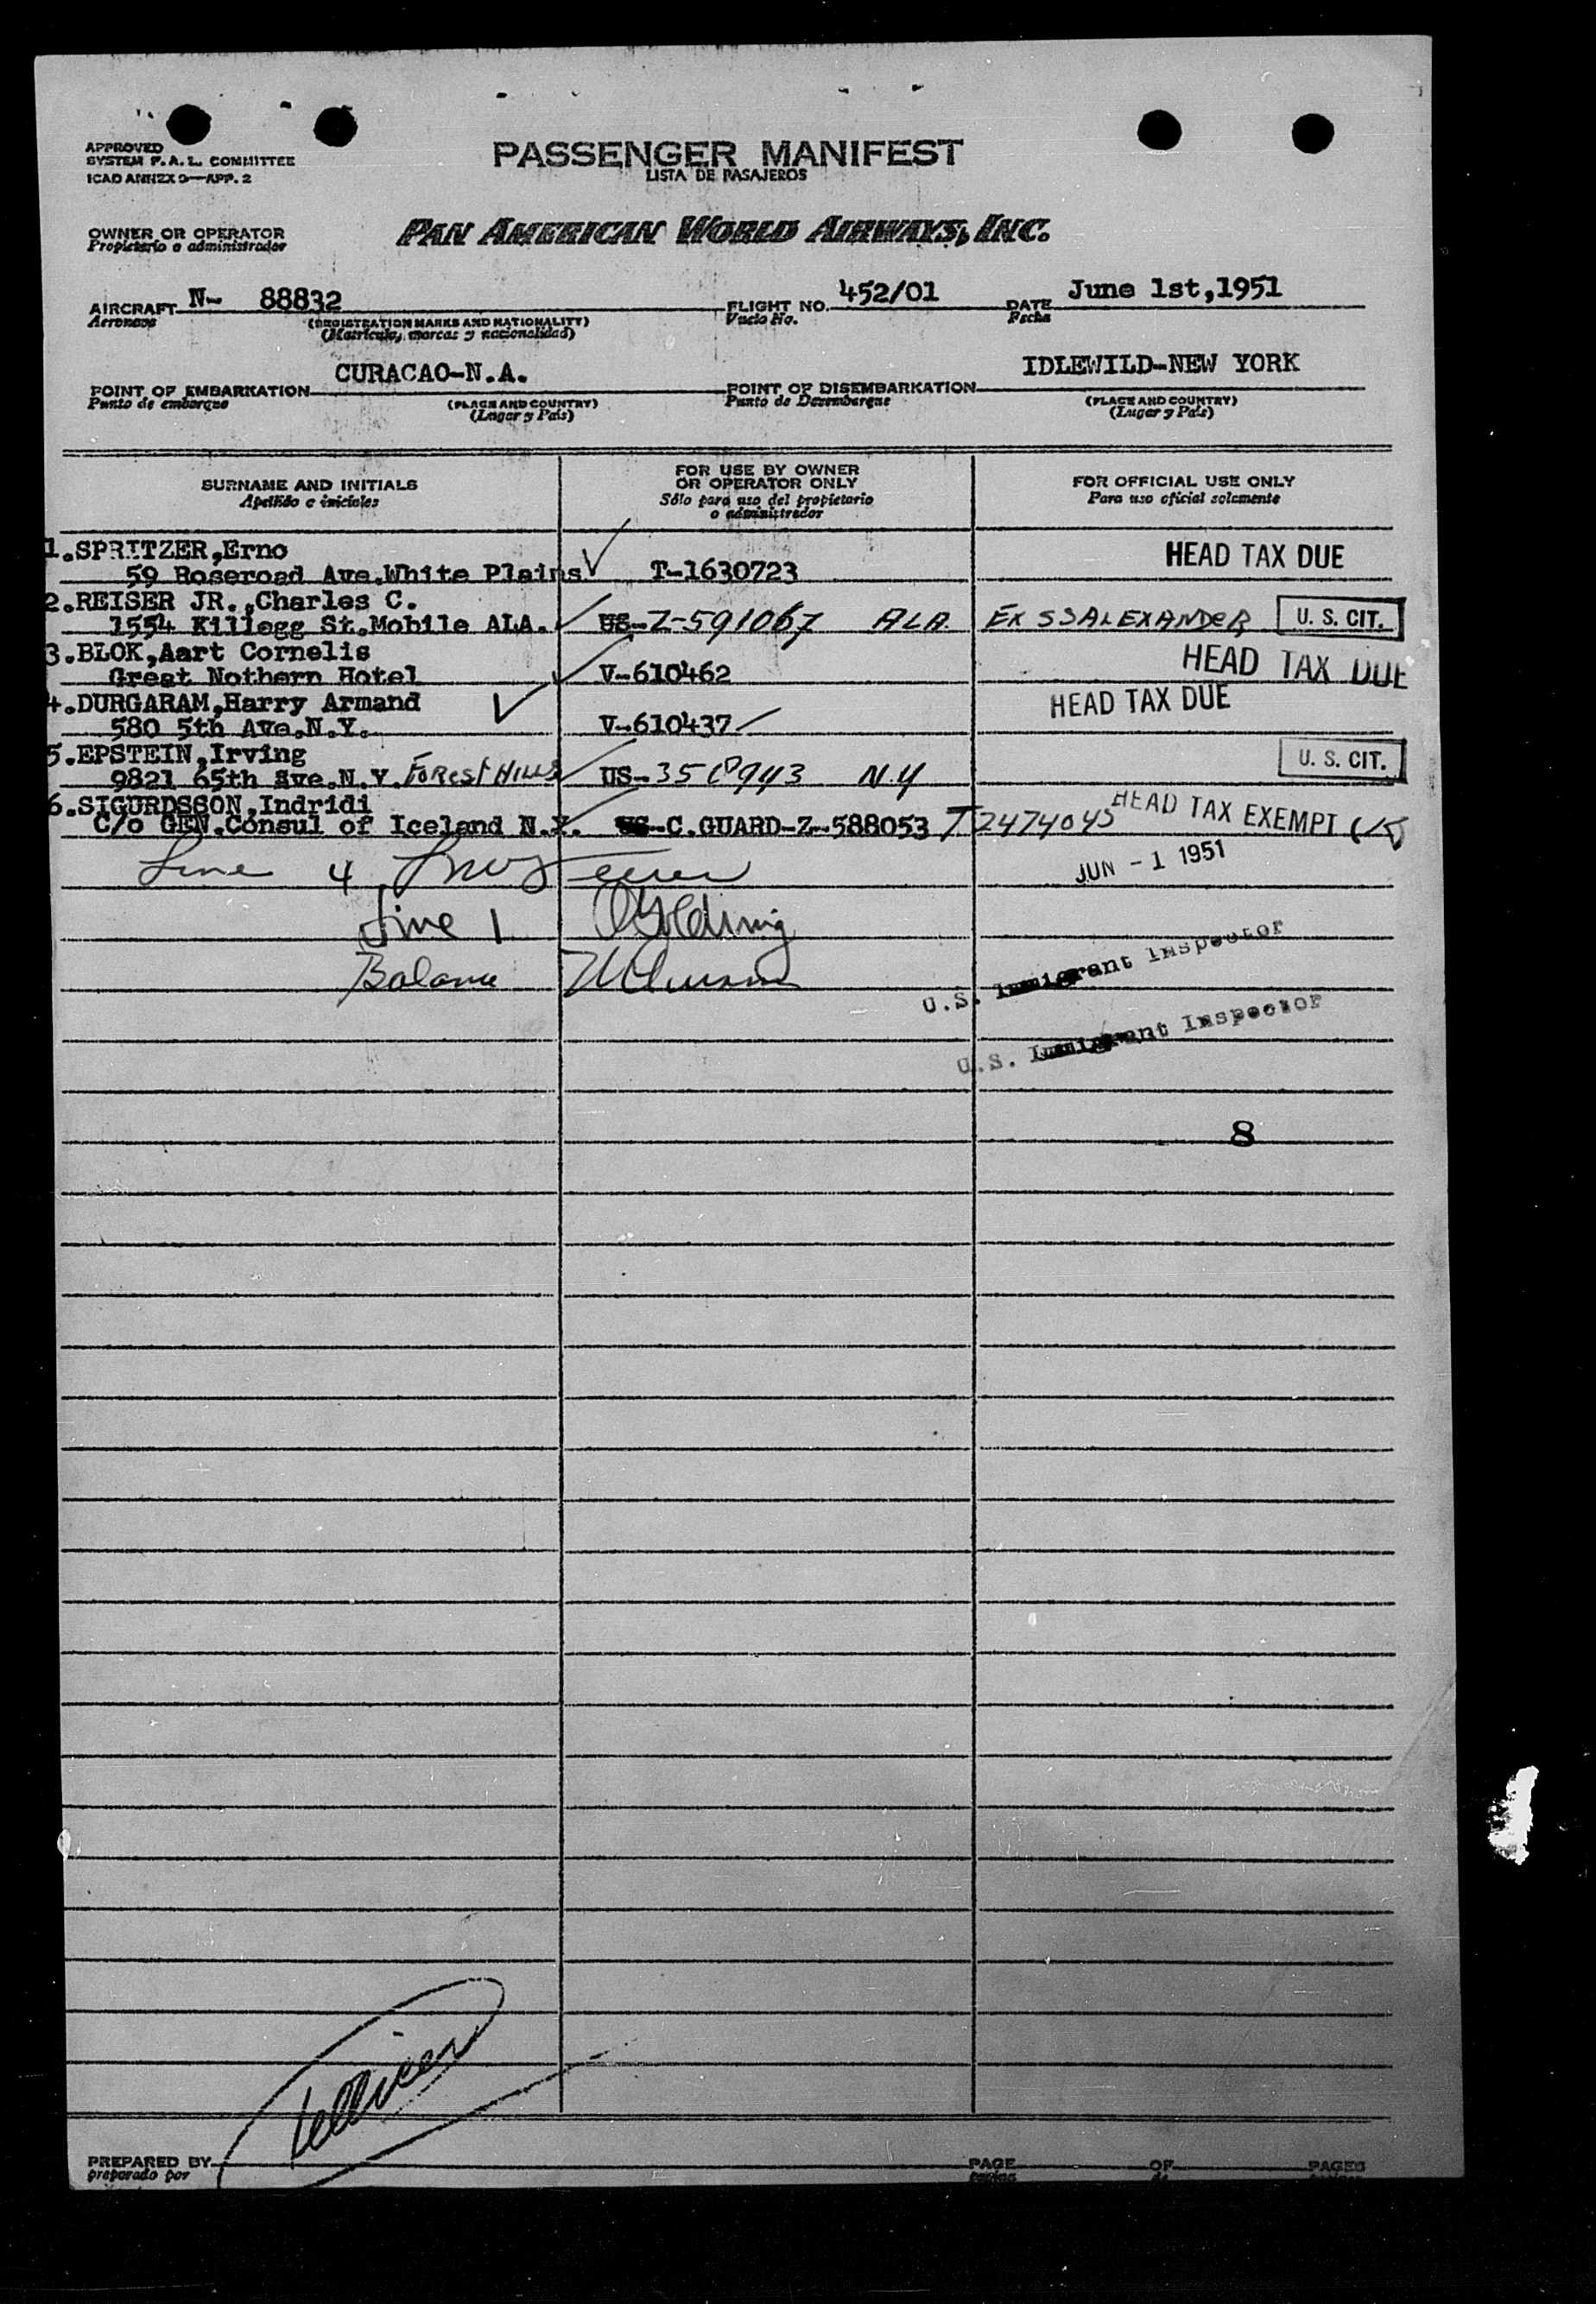 APPROVED
SYSTEM F.A.L. COMMITTEE
ICAO ANNEX 9—APP. 2
PASSENGER MANIFEST
LISTA DE PASAJEROS
OWNER OR OPERATOR
Propietario o administrador
PAN AMERICAN WORLD AIRWAYS, INC.
AIRCRAFT N- 88832
Aeronave
(REGISTRATION MARKS AND NATIONALITY)
(Matrícula, marcas y nacionalidad)
FLIGHT NO. 452/01
Vuelo No.
DATE June 1st,1951
Fecha
POINT OF EMBARKATION CURACAO-N.A.
Punto de embarque
(PLACE AND COUNTRY)
(Lugar y País)
POINT OF DISEMBARKATION IDLEWILD-NEW YORK
Punto de Desembarque
(PLACE AND COUNTRY)
(Lugar y País)
SURNAME AND INITIALS
Apellido e iniciales
FOR USE BY OWNER
OR OPERATOR ONLY
Sólo para uso del propietario
o administrador
FOR OFFICIAL USE ONLY
Para uso oficial solamente
1.SPRITZER,Erno HEAD TAX DUE
59 Roseroad Ave.White Plains T-1630723
2.REISER JR.,Charles C.
1554 Killegg St.Mobile ALA. US-Z-591067 ALA. EX SS ALEXANDER U. S. CIT.
3.BLOK,Aart Cornelis
Great Nothern Hotel V-610462 HEAD TAX DUE
4.DURGARAM,Harry Armand HEAD TAX DUE
580 5th Ave.N.Y. V-610437
5.EPSTEIN,Irving
9821 65th Ave.N.Y. FOREST HILLS US-350943 N.Y U. S. CIT.
6.SIGURDSSON,Indridi
C/o GEN.Consul of Iceland N.Y. US-C.GUARD-Z-588053 T2474045 HEAD TAX EXEMPT
Line 4
JUN - 1 1951
Line 1 Golding
Balance
U.S. Immigrant Inspector
U.S. Immigrant Inspector
8
PREPARED BY
preparado por
PAGE OF PAGES
página de